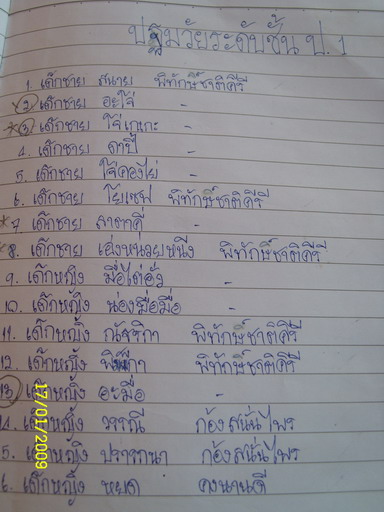 ปฐมวัยระดับชั้น ป.1
1. เด็กชาย สนาย พิทักษ์ชาติคีรี
2 เด็กชาย อะโจ่ -
* 3 เด็กชาย โจ่เกาะ -
4. เด็กชาย ดาปี่ -
5. เด็กชาย โจ๊คองไย่ -
6. เด็กชาย โยเซฟ พิทักษ์ชาติคีรี
* 7 เด็กชาย ลาดาคี่ -
* 8. เด็กชาย พิทักษ์ชาติคีรี
9. เด็กหญิง -
10. เด็กหญิง หน่องมื่อมื่อ -
11. เด็กหญิง ณัชริกา พิทักษ์ชาติคีรี
12. เด็กหญิง พิทักษ์ชาติคีรี
13 เด็กหญิง อะมื่อ -
14. เด็กหญิง วรรณี ก้องสนั่นไพร
5. เด็กหญิง ปรารถนา ก้องสนั่นไพร
6. เด็กหญิง หยด คงนานดี
17/01/2009